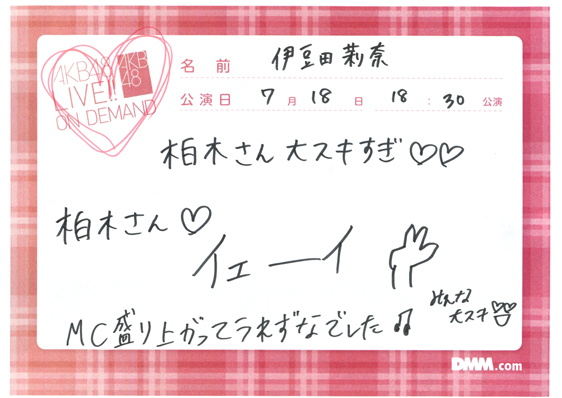 AKB48
LIVE!!
ON DEMAND
AKB
48
名前 伊豆田莉奈
公演日 7月18日 18:30公演
柏木さん大スキすぎ♡♡
柏木さん♡
イェーイ
みんな
大スキ
MC盛り上がってうれずなでした♫
DMM.com